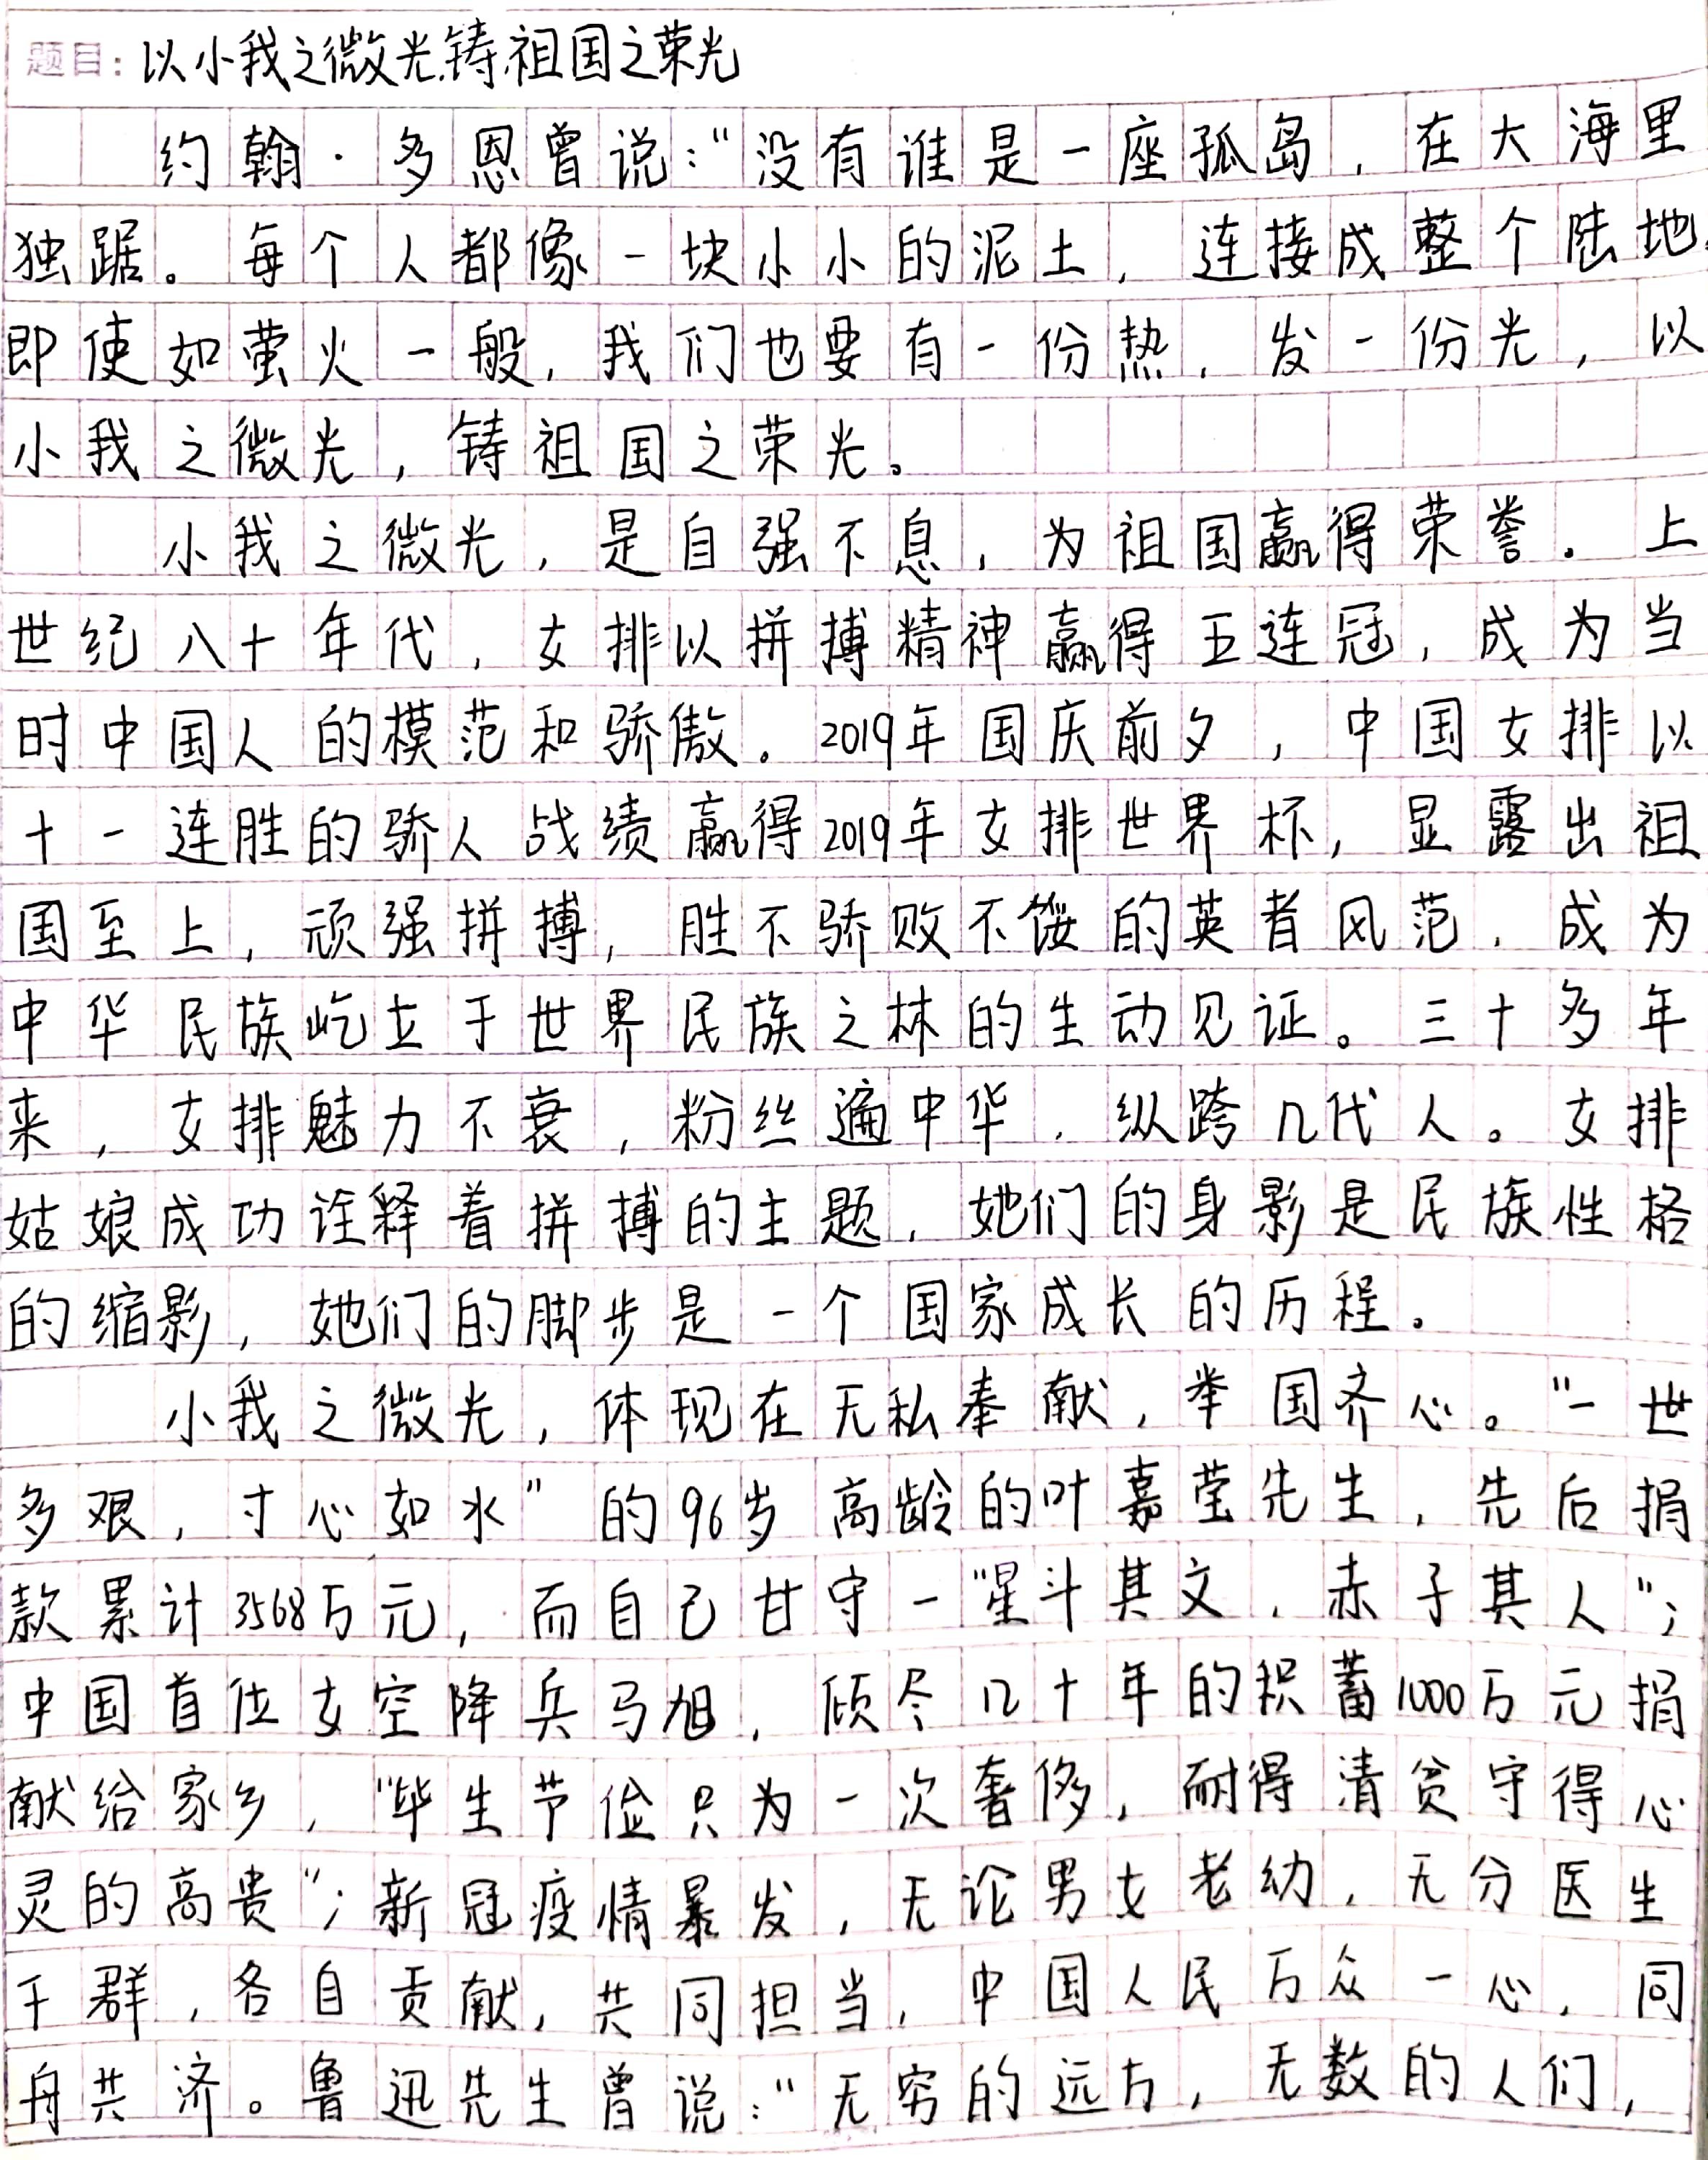 题目：以小我之微光,铸祖国之荣光
约翰·多恩曾说："没有谁是一座孤岛，在大海里
独踞。每个人都像一块小小的泥土，连接成整个陆地.
即使如萤火一般，我们也要有一份热，发一份光，以
小我之微光，铸祖国之荣光。
小我之微光，是自强不息，为祖国赢得荣誉。上
世纪八十年代，女排以拼搏精神赢得五连冠，成为当
时中国人的模范和骄傲。2019年国庆前夕，中国女排以
十一连胜的骄人战绩赢得2019年女排世界杯，显露出祖
国至上，顽强拼搏，胜不骄败不馁的英者风范，成为
中华民族屹立于世界民族之林的生动见证。三十多年
来，女排魅力不衰，粉丝遍中华，纵跨几代人。女排
姑娘成功诠释着拼搏的主题，她们的身影是民族性格
的缩影，她们的脚步是一个国家成长的历程。
小我之微光，体现在无私奉献，举国齐心。"一世
多艰，寸心如水"的96岁高龄的叶嘉莹先生，先后捐
款累计3568万元，而自己甘守一"星斗其文，赤子其人"；
中国首位女空降兵马旭，倾尽几十年的积蓄1000万元捐
献给家乡，"毕生节俭只为一次奢侈，耐得清贫守得心
灵的高贵"；新冠疫情暴发，无论男女老幼，无分医生
干群，各自贡献，共同担当，中国人民万众一心，同
舟共济。鲁迅先生曾说："无穷的远方，无数的人们，